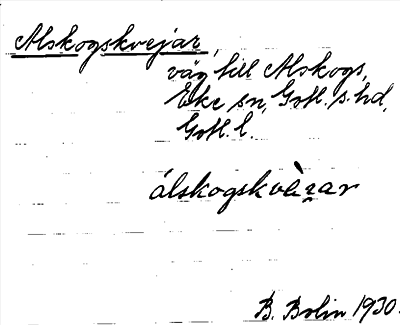 Alskogskvejar,
väg till Alskogs,
Eke sn, Gotl. s. hd,
Gotl. l.
álskogskvὰʒar
B. Bolin 1930.